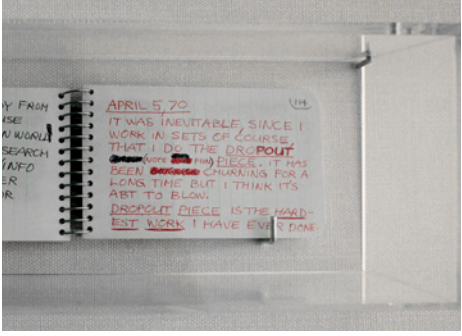 Y FROM
USE
N WORLD
SEARCH
INFO
ER
OR
114
APRIL 5, 70
IT WAS INEVITABLE, SINCE I
WORK IN SETS OF COURSE,
THAT I DO THE DROPOUT
(NOTE PUN) PIECE. IT HAS
BEEN CHURNING FOR A
LONG TIME BUT I THINK IT'S
ABT TO BLOW.
DROPOUT PIECE IS THE HARD-
EST WORK I HAVE EVER DONE